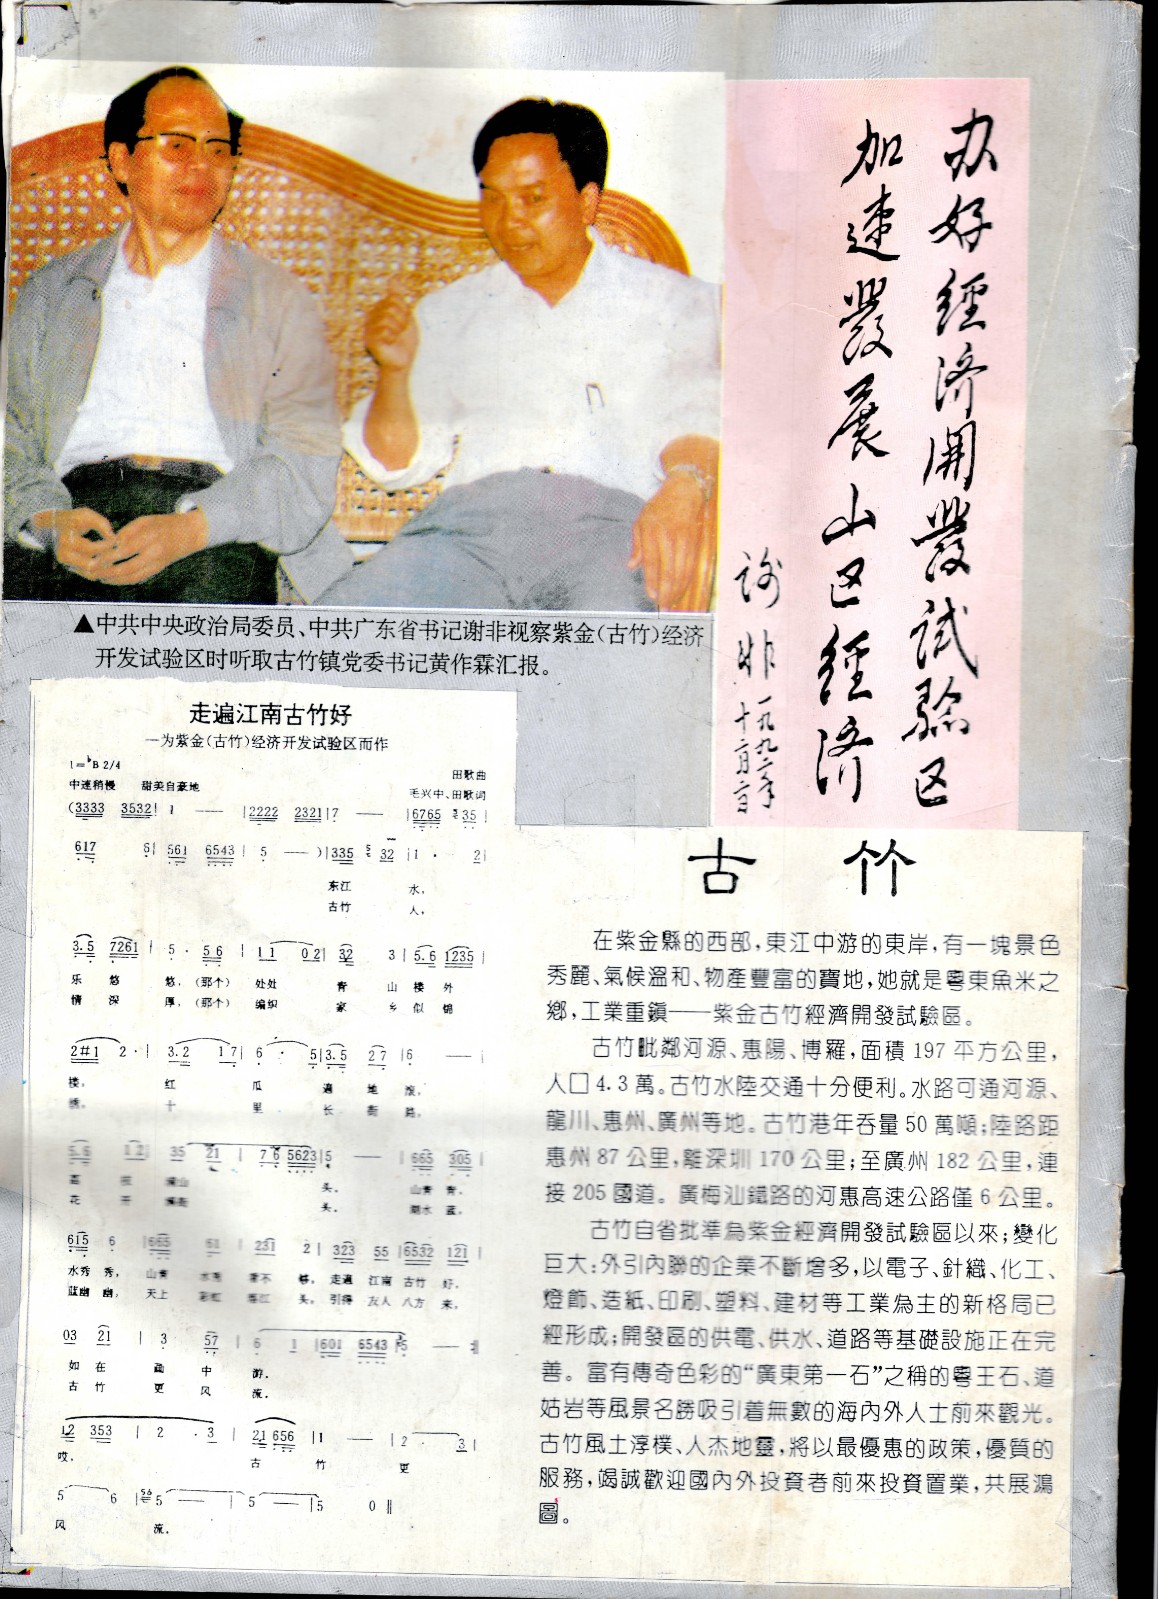 办好经济開發試驗区
加速發展山区经济
谢非
一九九二年
十二月二日
▲中共中央政治局委员、中共广东省书记谢非视察紫金(古竹)经济
开发试验区时听取古竹镇党委书记黄作霖汇报。
走遍江南古竹好
—为紫金(古竹)经济开发试验区而作
1=♭B 2/4
田歌曲
中速稍慢 甜美自豪地
毛兴中、田歌词
(3333 3532 | 1 — | 2222 2321 | 7 — | 6765 35 |
617 6 | 561 6543 | 5 — ) | 335 32 | 1 · 2 |
东江 水,
古竹 人,
3.5 7261 | 5 · 56 | 11 02 | 32 3 | 5.6 1235 |
乐 悠 悠,(那个) 处处 青 山 楼 外
情 深 厚,(那个) 编织 家 乡 似 锦
2#1 2 · | 3.2 17 | 6 · 5 | 3.5 27 | 6 — |
楼, 红 瓜 遍 地 滚,
绣, 十 里 长 街 路,
5.6 12 35 21 | 76 5623 | 5 — | 665 305 |
头, 山青 青,
花 开 头, 湖水 蓝,
615 6 | 665 61 | 231 2 | 323 55 | 6532 121 |
水秀 秀, 山青 水秀 看不 够, 走遍 江南 古竹 好,
蓝幽 幽, 天上 彩虹 落江 头, 引得 友人 八方 来,
03 21 | 3 57 | 6 1 | 601 6543 | 5 — :||
如在 画 中 游.
古竹 更 风 流.
12 353 | 2 · 3 | 21 656 | 1 — | 2 3 |
哎, 古 竹 更
5 6 | 5 — | 5 — | 5 0 ||
风 流.
古 竹
在紫金縣的西部,東江中游的東岸,有一塊景色
秀麗、氣候溫和、物產豐富的寶地,她就是粵東魚米之
鄉,工業重鎮——紫金古竹經濟開發試驗區。
古竹毗鄰河源、惠陽、博羅,面積 197 平方公里,
人口 4.3 萬。古竹水陸交通十分便利。水路可通河源、
龍川、惠州、廣州等地。古竹港年吞量 50 萬噸;陸路距
惠州 87 公里,離深圳 170 公里;至廣州 182 公里,連
接 205 國道。廣梅汕鐵路的河惠高速公路僅 6 公里。
古竹自省批準為紫金經濟開發試驗區以來;變化
巨大:外引內聯的企業不斷增多,以電子、針織、化工、
燈飾、造紙、印刷、塑料、建材等工業為主的新格局已
經形成;開發區的供電、供水、道路等基礎設施正在完
善。富有傳奇色彩的“廣東第一石”之稱的粵王石、道
姑岩等風景名勝吸引着無數的海內外人士前來觀光。
古竹風土淳樸、人杰地靈,將以最優惠的政策,優質的
服務,竭誠歡迎國內外投資者前來投資置業,共展鴻
圖。